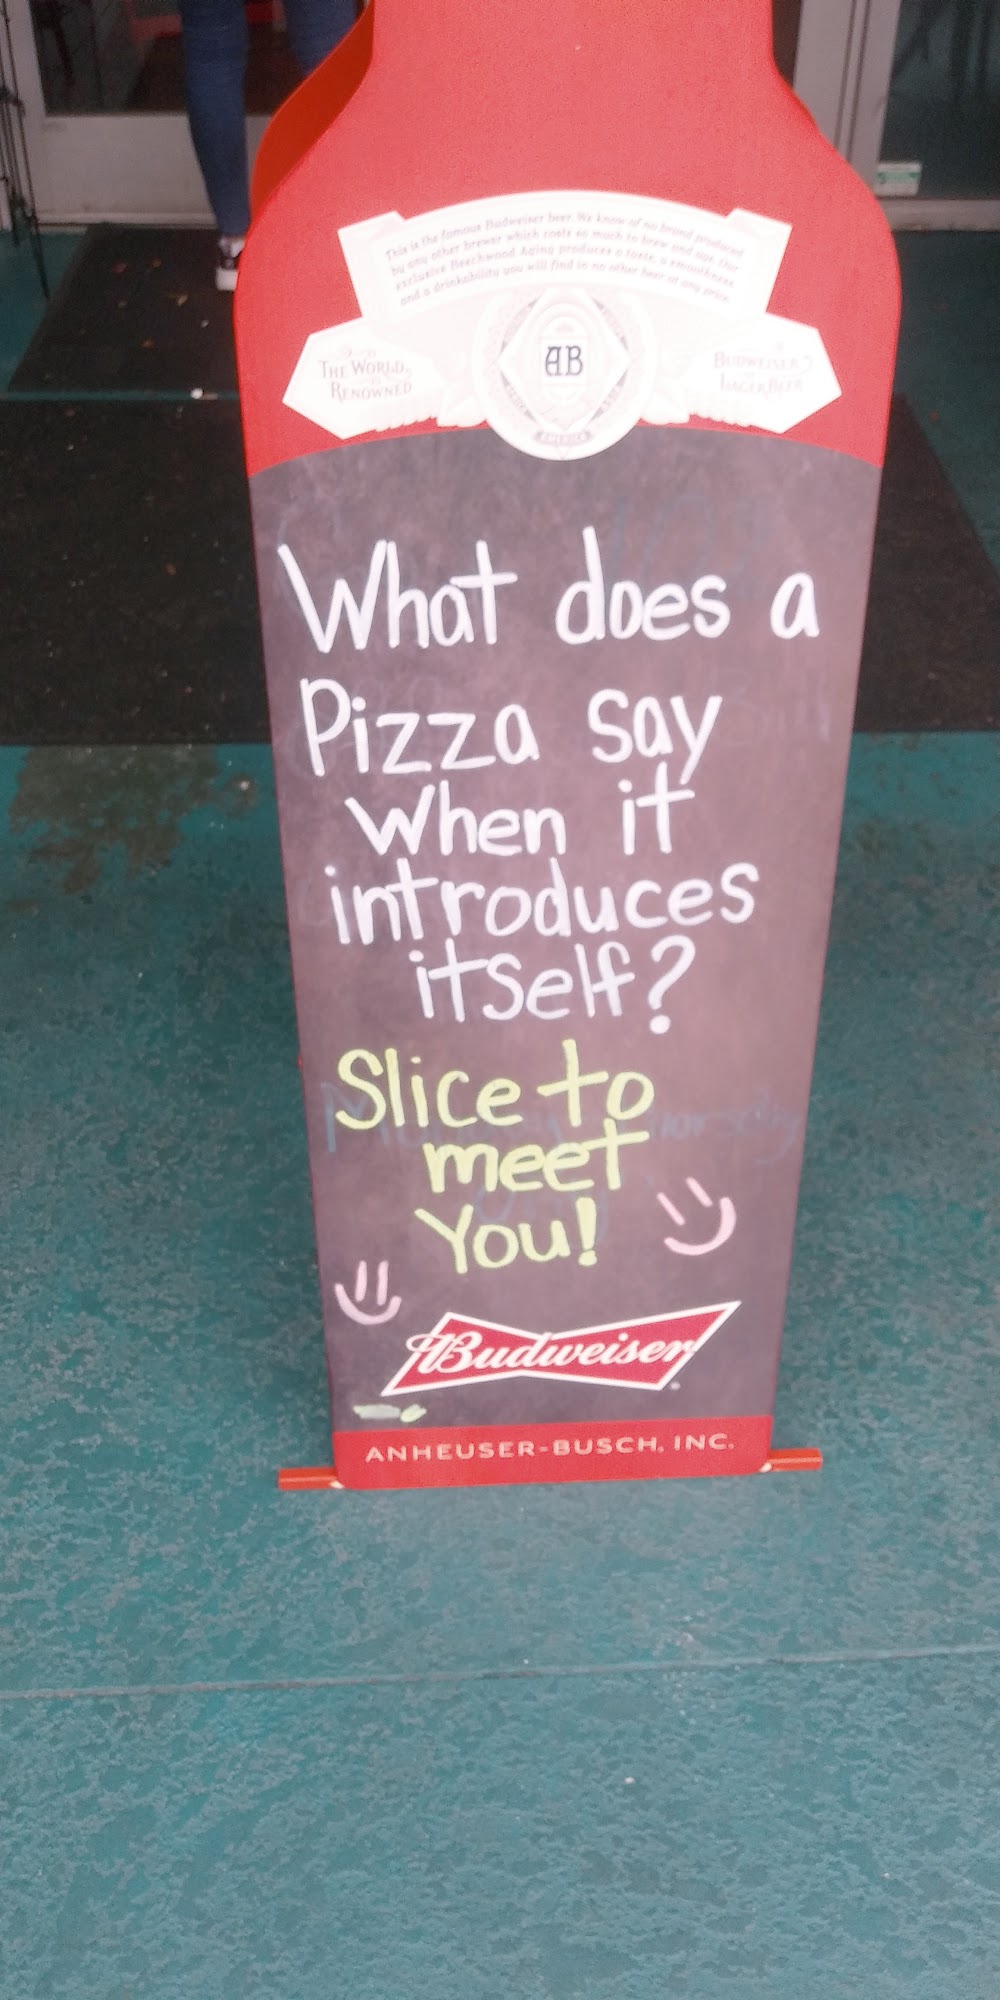 This is the famous Budweiser beer. We know of no brand produced
by any other brewer which costs so much to brew and age. Our
exclusive Beechwood Aging produces a taste, a smoothness
and a drinkability you will find in no other beer at any price.
THE WORLD
RENOWNED
AB
BUDWEISER
LAGER BEER
AMERICA
What does a
Pizza say
when it
introduces
itself?
Slice to
meet
You!
Budweiser
ANHEUSER-BUSCH, INC.